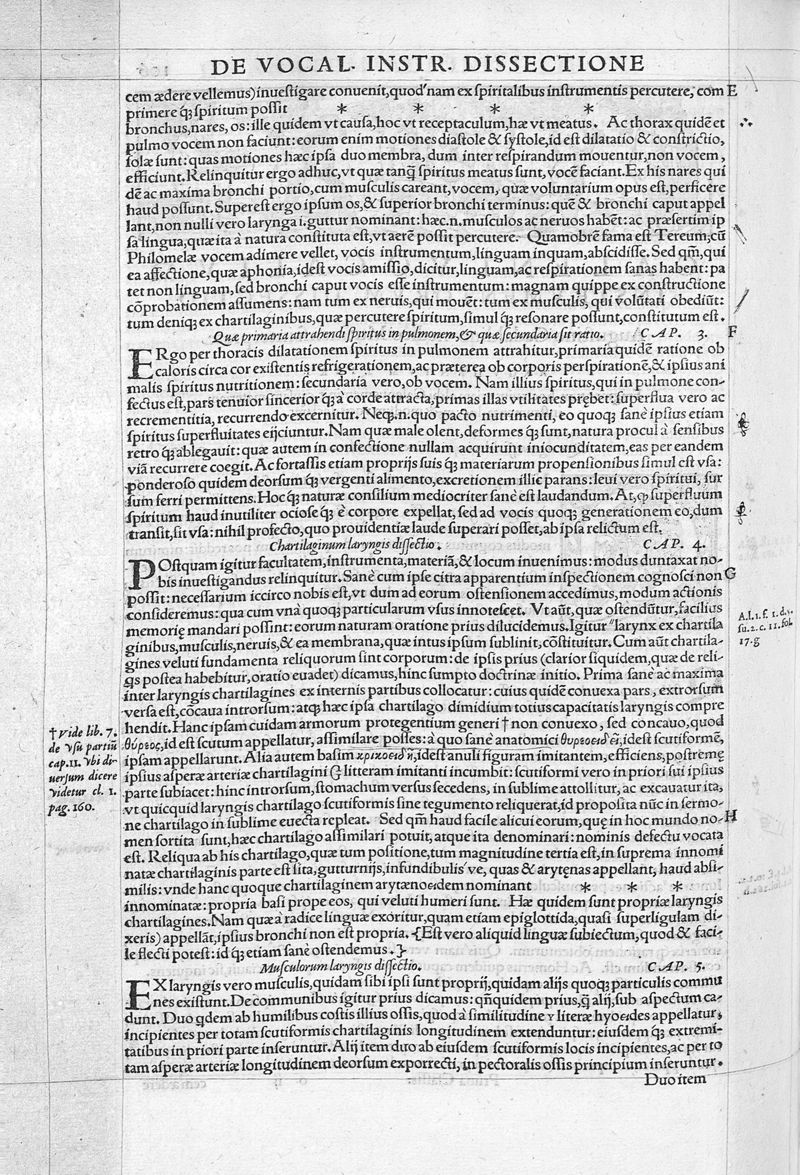 DE VOCAL. INSTR. DISSECTIONE
cem ædere vellemus) inuestigare conuenit, quod'nam ex spiritalibus instrumentis percutere, com E
primere q́ꝫ spiritum possit * * * *
bronchus, nares, os: ille quidem vt causa, hoc vt receptaculum, hæ vt meatus. Ac thorax quidẽ et
pulmo vocem non faciunt: eorum enim motiones diastole & systole, id est dilatatio & constrictio,
solæ sunt: quas motiones hæc ipsa duo membra, dum inter respirandum mouentur, non vocem,
efficiunt. Relinquitur ergo adhuc, vt quæ tanq̃ spiritus meatus sunt, vocẽ faciant. Ex his nares qui
dẽ ac maxima bronchi portio, cum musculis careant, vocem, quæ voluntarium opus est, perficere
haud possunt. Superest ergo ipsum os, & superior bronchi terminus: quẽ & bronchi caput appel
lant, non nulli vero larynga .i. guttur nominant: hæc .n. musculos ac neruos habẽt: ac præsertim ip
sa lingua, quæ ita à natura constituta est, vt aerẽ possit percutere. Quamobrẽ fama est Tereum, cũ
Philomelæ vocem adimere vellet, vocis instrumentum, linguam inquam, abscidisse. Sed qm̃, qui
ea affectione, quæ aphonia, idest vocis amissio, dicitur, linguam, ac respirationem sanas habent: pa
tet non linguam, sed bronchi caput vocis esse instrumentum: magnam quippe ex constructione
cõprobationem assumens: nam tum ex neruis, qui mouẽt: tum ex musculis, qui volũtati obediũt:
tum deniqꝫ ex chartilaginibus, quæ percutere spiritum, simul q́ꝫ resonare possunt, constitutum est.
Quæ primaria attrahendi spiritus in pulmonem, & quæ secundaria sit ratio. CAP. 3. F
ERgo per thoracis dilatationem spiritus in pulmonem attrahitur, primaria quidẽ ratione ob
caloris circa cor existentis refrigerationem, ac præterea ob corporis perspirationẽ, & ipsius ani
malis spiritus nutritionem: secundaria vero, ob vocem. Nam illius spiritus, qui in pulmone con-
fectus est, pars tenuior sincerior q́ꝫ à corde attracta, primas illas vtilitates prębet: superflua vero ac
recrementitia, recurrendo excernitur. Neqꝫ .n. quo pacto nutrimenti, eo quoqꝫ sanè ipsius etiam
spiritus superfluitates eijciuntur. Nam quæ male olent, deformes q́ꝫ sunt, natura procul à sensibus
retro q́ꝫ ablegauit: quæ autem in confectione nullam acquirunt iniocunditatem, eas per eandem
viã recurrere coegit. Ac fortassis etiam proprijs suis q́ꝫ materiarum propensionibus simul est vsa:
ponderoso quidem deorsum q́ꝫ vergenti alimento, excretionem illic parans: leui vero spiritui, sur
sum ferri permittens. Hoc q́ꝫ naturæ consilium mediocriter sanè est laudandum. At, ꝙ superfluum
spiritum haud inutiliter ociose q́ꝫ è corpore expellat, sed ad vocis quoqꝫ generationem eo, dum
transit, sit vsa: nihil profecto, quo prouidentiæ laude superari posset, ab ipsa relictum est.
Chartilaginum laryngis dissectio. CAP. 4.
POstquam igitur facultatem, instrumenta, materiã, & locum inuenimus: modus duntaxat no-
bis inuestigandus relinquitur. Sanè cum ipse citra apparentium inspectionem cognosci non G
possit: necessarium iccirco nobis est, vt dum ad eorum ostensionem accedimus, modum actionis
consideremus: qua cum vnà quoqꝫ particularum vsus innotescet. Vt aũt, quæ ostendũtur, facilius
memorię mandari possint: eorum naturam oratione prius dilucidemus. Igitur "larynx ex chartila
ginibus, musculis, neruis, & ea membrana, quæ intus ipsum sublinit, cõstituitur. Cum aũt chartila-
gines veluti fundamenta reliquorum sint corporum: de ipsis prius (clarior siquidem, quæ de reli-
q̃s postea habebitur, oratio euadet) dicamus, hinc sumpto doctrinæ initio. Prima sanè ac maxima
inter laryngis chartilagines ex internis partibus collocatur: cuius quidẽ conuexa pars, extrorsum
versa est, cõcaua introrsum: atqꝫ hæc ipsa chartilago dimidium totius capacitatis laryngis compre
hendit. Hanc ipsam cuidam armorum protegentium generi † non conuexo, sed concauo, quod
θύρεος, id est scutum appellatur, assimilare posses: à quo sanè anatomici θυρεοειδῆ, idest scutiformẽ,
ipsam appellarunt. Alia autem basim κρικοειδῆ, idest anuli figuram imitantem, efficiens, postremę
ipsius asperæ arteriæ chartilagini C litteram imitanti incumbit: scutiformi vero in priori sui ipsius
parte subiacet: hinc introrsum, stomachum versus secedens, in sublime attollitur, ac excauatur ita,
vt quicquid laryngis chartilago scutiformis sine tegumento reliquerat, id proposita nũc in sermo-
ne chartilago in sublime euecta repleat. Sed qm̃ haud facile alicui eorum, quę in hoc mundo no- H
men sortita sunt, hæc chartilago assimilari potuit, atque ita denominari: nominis defectu vocata
est. Reliqua ab his chartilago, quæ tum positione, tum magnitudine tertia est, in suprema innomi
natæ chartilaginis parte est sita, gutturnijs, infundibulis 've, quas & arytęnas appellant, haud absi-
milis: vnde hanc quoque chartilaginem arytænoeidem nominant * * *
innominatæ: propria basi prope eos, qui veluti humeri sunt. Hæ quidem sunt propriæ laryngis
chartilagines. Nam quæ à radice linguæ exoritur, quam etiam epiglottida, quasi superligulam di-
xeris) appellãt, ipsius bronchi non est propria. {Est vero aliquid linguæ subiectum, quod & faci-
le flecti potest: id q́ꝫ etiam sanè ostendemus.}
Musculorum laryngis dissectio. CAP. 5.
EX laryngis vero musculis, quidam sibi ipsi sunt proprij, quidam alijs quoqꝫ particulis commu
nes existunt. De communibus igitur prius dicamus: qñquidem prius, q̃ alij, sub aspectum ca-
dunt. Duo q̃dem ab humilibus costis illius ossis, quod à similitudine y literæ hyoeides appellatur,
incipientes per totam scutiformis chartilaginis longitudinem extenduntur: eiusdem q́ꝫ extremi-
tatibus in priori parte inseruntur. Alij item duo ab eiusdem scutiformis locis incipientes, ac per to
tam asperæ arteriæ longitudinem deorsum exporrecti, in pectoralis ossis principium inseruntur.
Duo item
† vide lib. 7.
de vsu partiũ
cap. 11. vbi di-
uersum dicere
videtur cl. 1.
pag. 160.
A.l. 1. f. 1. d. v.
su. 2. c. 11. fol.
17. g